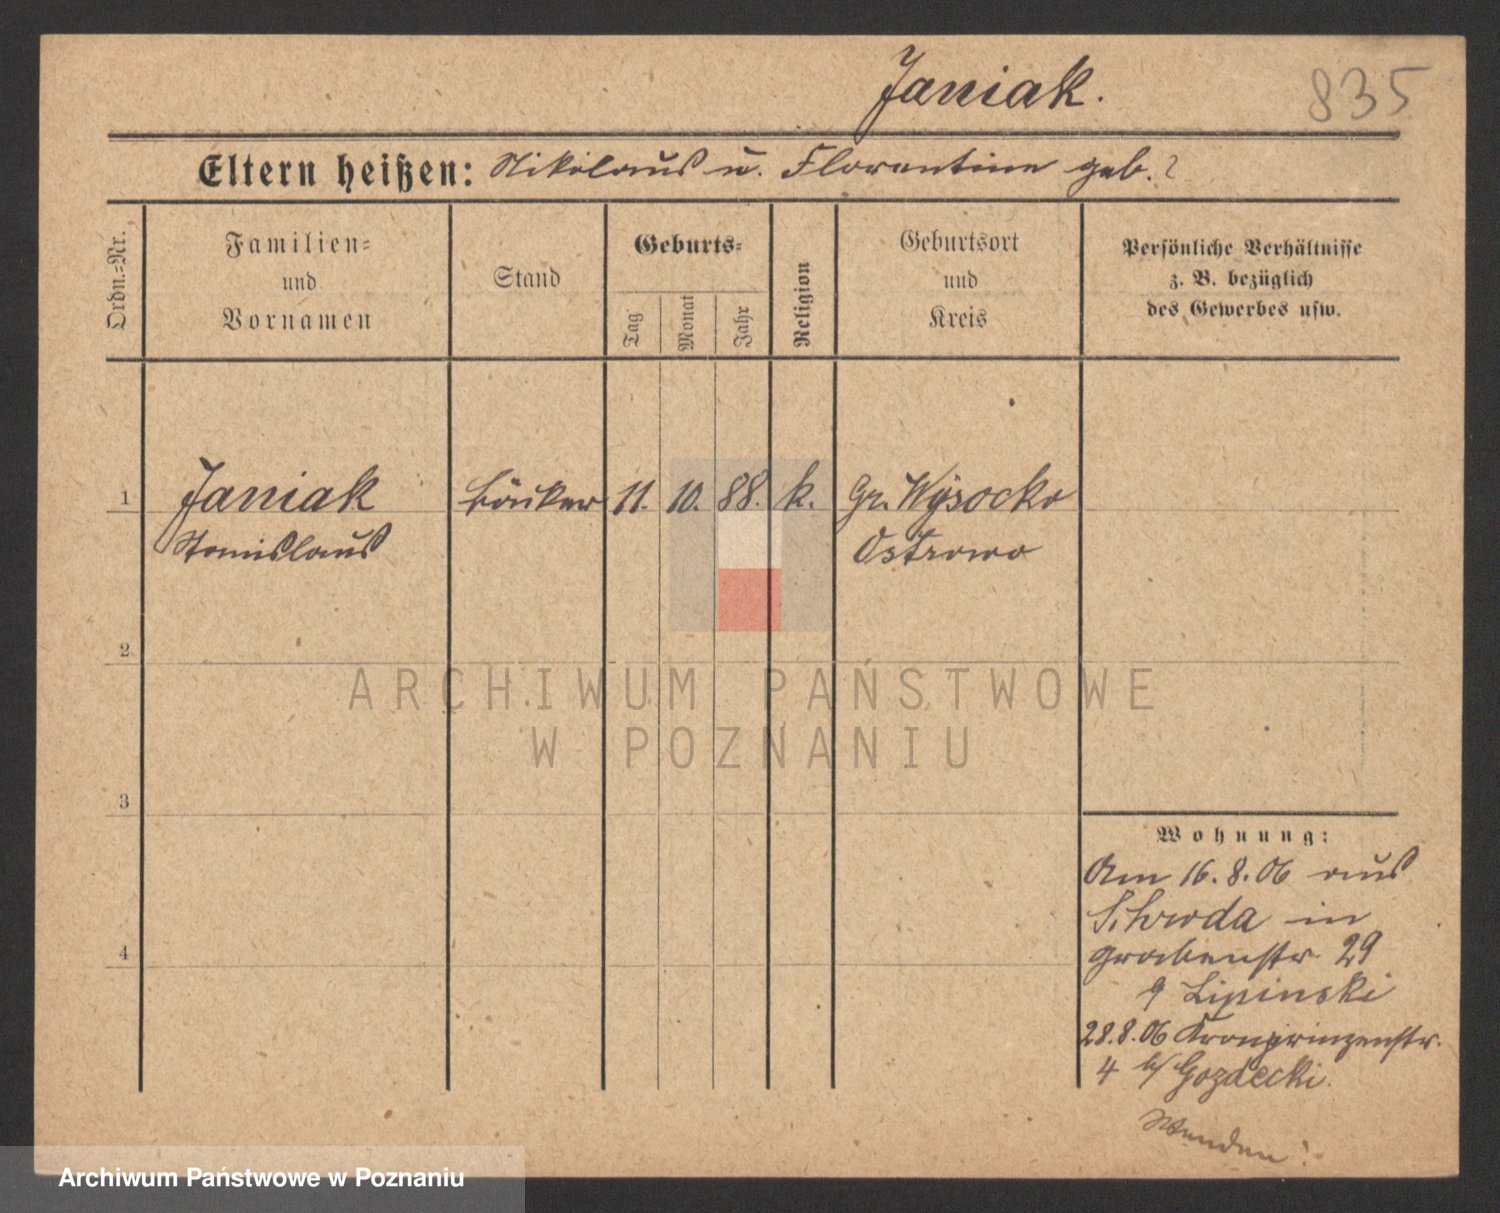 Janiak.
835
Eltern heißen: Nikolaus u. Florentine geb. ?
Ordn.=Nr.
Familien=
und
Vornamen
Stand
Geburts=
Tag
Monat
Jahr
Religion
Geburtsort
und
Kreis
Persönliche Verhältnisse
z. B. bezüglich
des Gewerbes usw.
1 Janiak 11. 10. 88. k. Gr. Wysocko
Stanislaus Ostrowo
2
ARCHIWUM PAŃSTWOWE
W POZNANIU
3
Wohnung:
Am 16.8.06 aus
Schroda in
Grabenstr 29
Lipinski
28.8.06 Kronprinzenstr.
4 b/ Gozdecki.
Wenden!
4
Archiwum Państwowe w Poznaniu